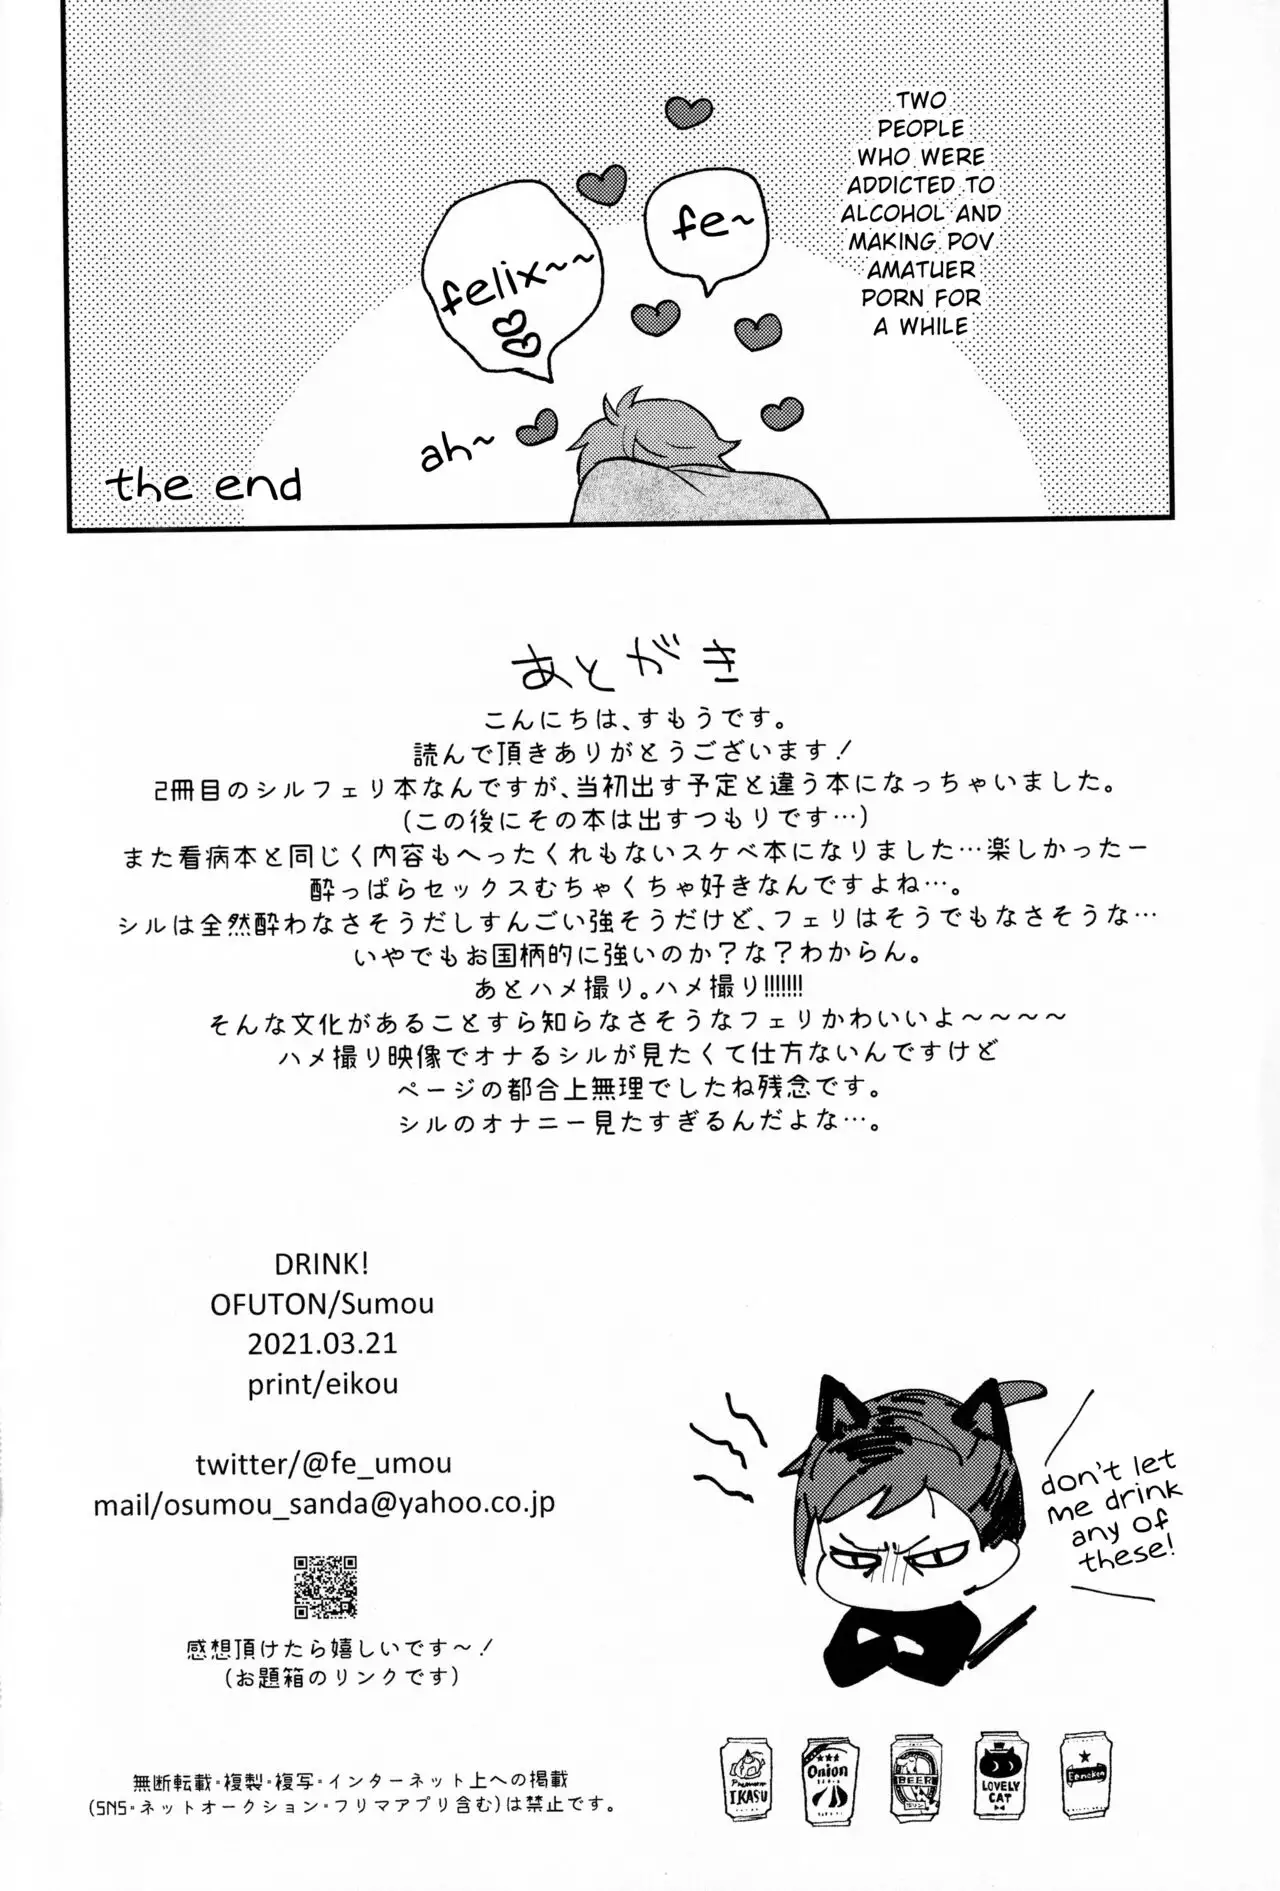 TWO
PEOPLE
WHO WERE
ADDICTED TO
ALCOHOL AND
MAKING POV
AMATUER
PORN FOR
A WHILE
fe~
felix~~
ah~
the end
あとがき
こんにちは、すもうです。
読んで頂きありがとうございます!
2冊目のシルフェリ本なんですが、当初出す予定と違う本になっちゃいました。
(この後にその本は出すつもりです…)
また看病本と同じく内容もへったくれもないスケベ本になりました…楽しかったー
酔っぱらセックスむちゃくちゃ好きなんですよね…。
シルは全然酔わなさそうだしすんごい強そうだけど、フェリはそうでもなさそうな…
いやでもお国柄的に強いのか?な?わからん。
あとハメ撮り。ハメ撮り!!!!!!!
そんな文化があることすら知らなさそうなフェリかわいいよ～～～～
ハメ撮り映像でオナるシルが見たくて仕方ないんですけど
ページの都合上無理でしたね残念です。
シルのオナニー見たすぎるんだよな…。
DRINK!
OFUTON/Sumou
2021.03.21
print/eikou
twitter/@fe_umou
mail/osumou_sanda@yahoo.co.jp
感想頂けたら嬉しいです～!
(お題箱のリンクです)
無断転載・複製・複写・インターネット上への掲載
(SNS・ネットオークション・フリマアプリ含む)は禁止です。
don't let
me drink
any of
these!
IKASU
Onion
BEER
LOVELY
CAT